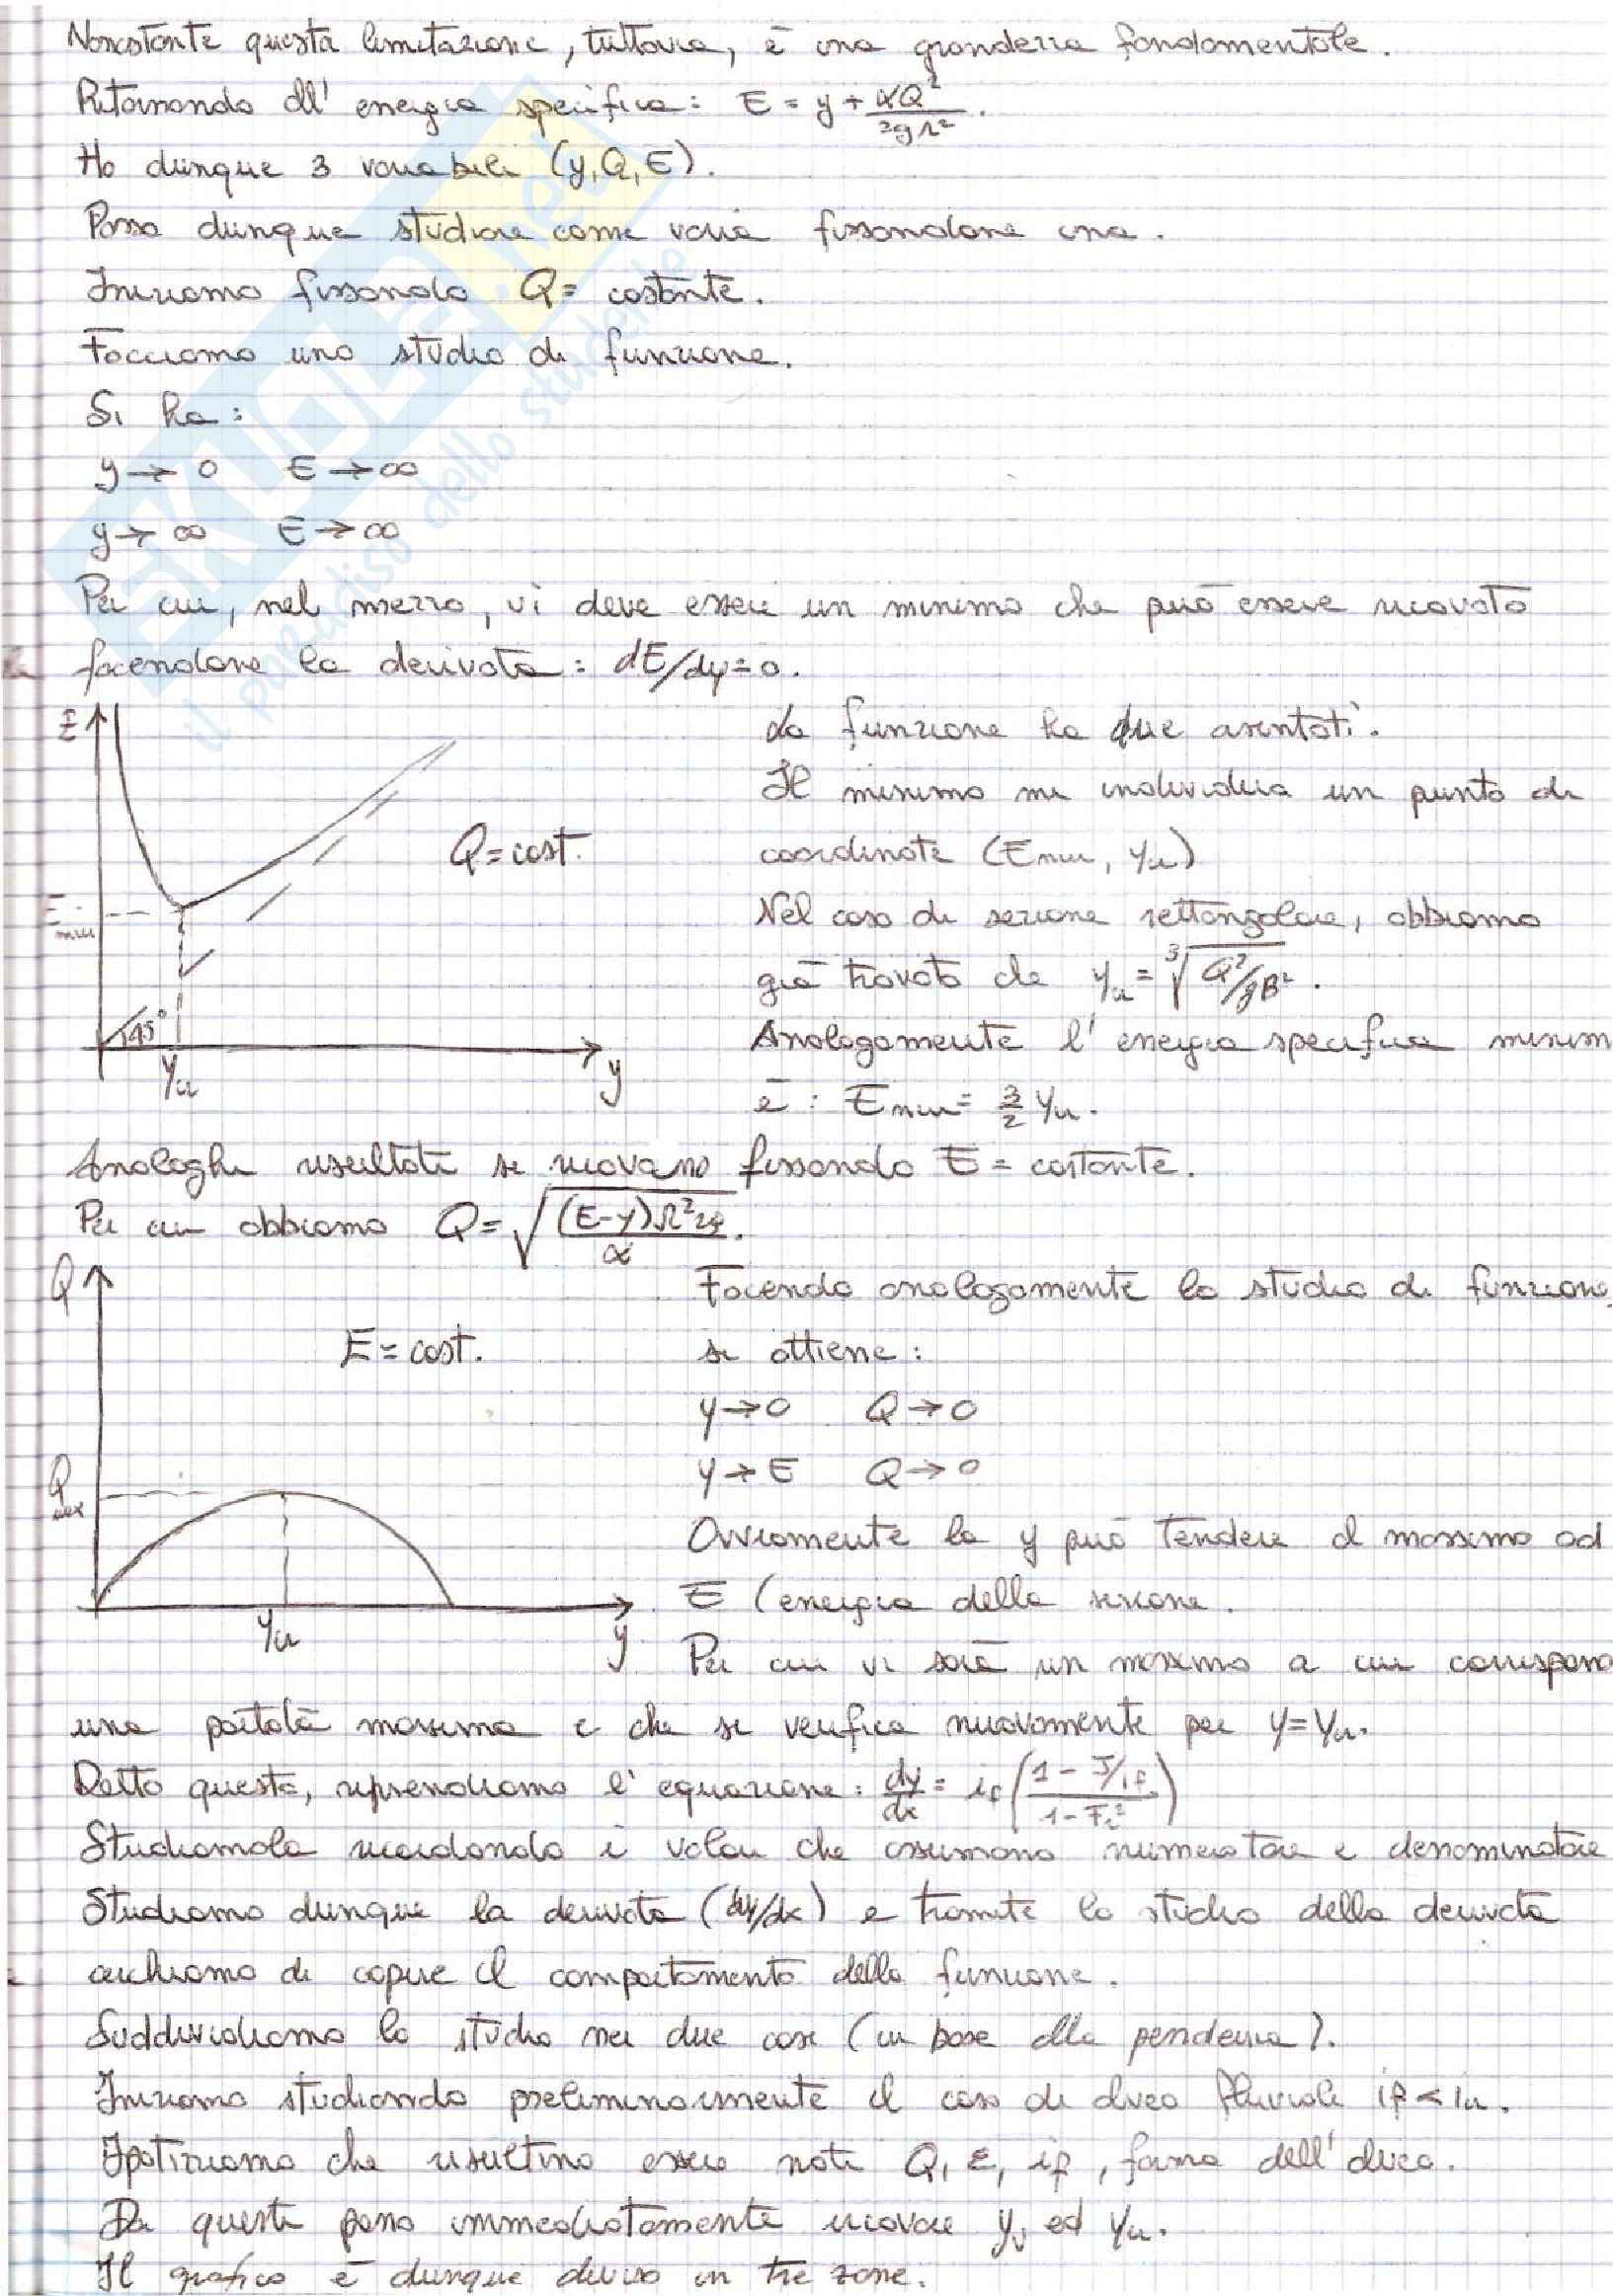 Nonostante questa limitazione, tuttavia, è una grandezza fondamentale.
Ritornando all' energia specifica: E = y + αQ²/2gΩ².
Ho dunque 3 variabili (y, Q, E).
Posso dunque studiare come varia fissandone una.
Iniziamo fissando Q = costante.
Facciamo uno studio di funzione.
Si ha:
y → 0 E → ∞
y → ∞ E → ∞
Per cui, nel mezzo, vi deve essere un minimo che può essere ricavato
facendone la derivata: dE/dy = 0.
E
Q = cost.
E min
45°
yc
y
La funzione ha due asintoti.
Il minimo mi individua un punto di
coordinate (Emin, yc)
Nel caso di sezione rettangolare, abbiamo
già trovato che yc = ∛(Q²/gB²).
Analogamente l' energia specifica minim
è: Emin = 3/2 yc.
Analoghi risultati si ricavano fissando E = costante.
Per cui abbiamo Q = √((E-y)Ω²2g/α).
Q
E = cost.
Q max
yc
y
Facendo analogamente lo studio di funzione,
si ottiene:
y → 0 Q → 0
y → E Q → 0
Ovviamente la y può tendere al massimo ad
E (energia della sezione.
Per cui vi sarà un massimo a cui corrispond
una portata massima e che si verifica nuovamente per y = yc.
Detto questo, riprendiamo l' equazione: dy/dx = if ((1 - J/if)/(1 - Fr²))
Studiamola ricordando i valori che assumono numeratore e denominatore
Studiamo dunque la derivata (dy/dx) e tramite lo studio della derivata
cerchiamo di capire il comportamento della funzione.
Suddividiamo lo studio nei due casi (in base alla pendenza).
Iniziamo studiando preliminarmente il caso di alveo fluviale if < ic.
Ipotizziamo che risultino essere noti Q, ε, if, forma dell' alveo.
Da questi posso immediatamente ricavare yu ed yc.
Il grafico è dunque diviso in tre zone.
SKUOLA.net
il paradiso dello studente